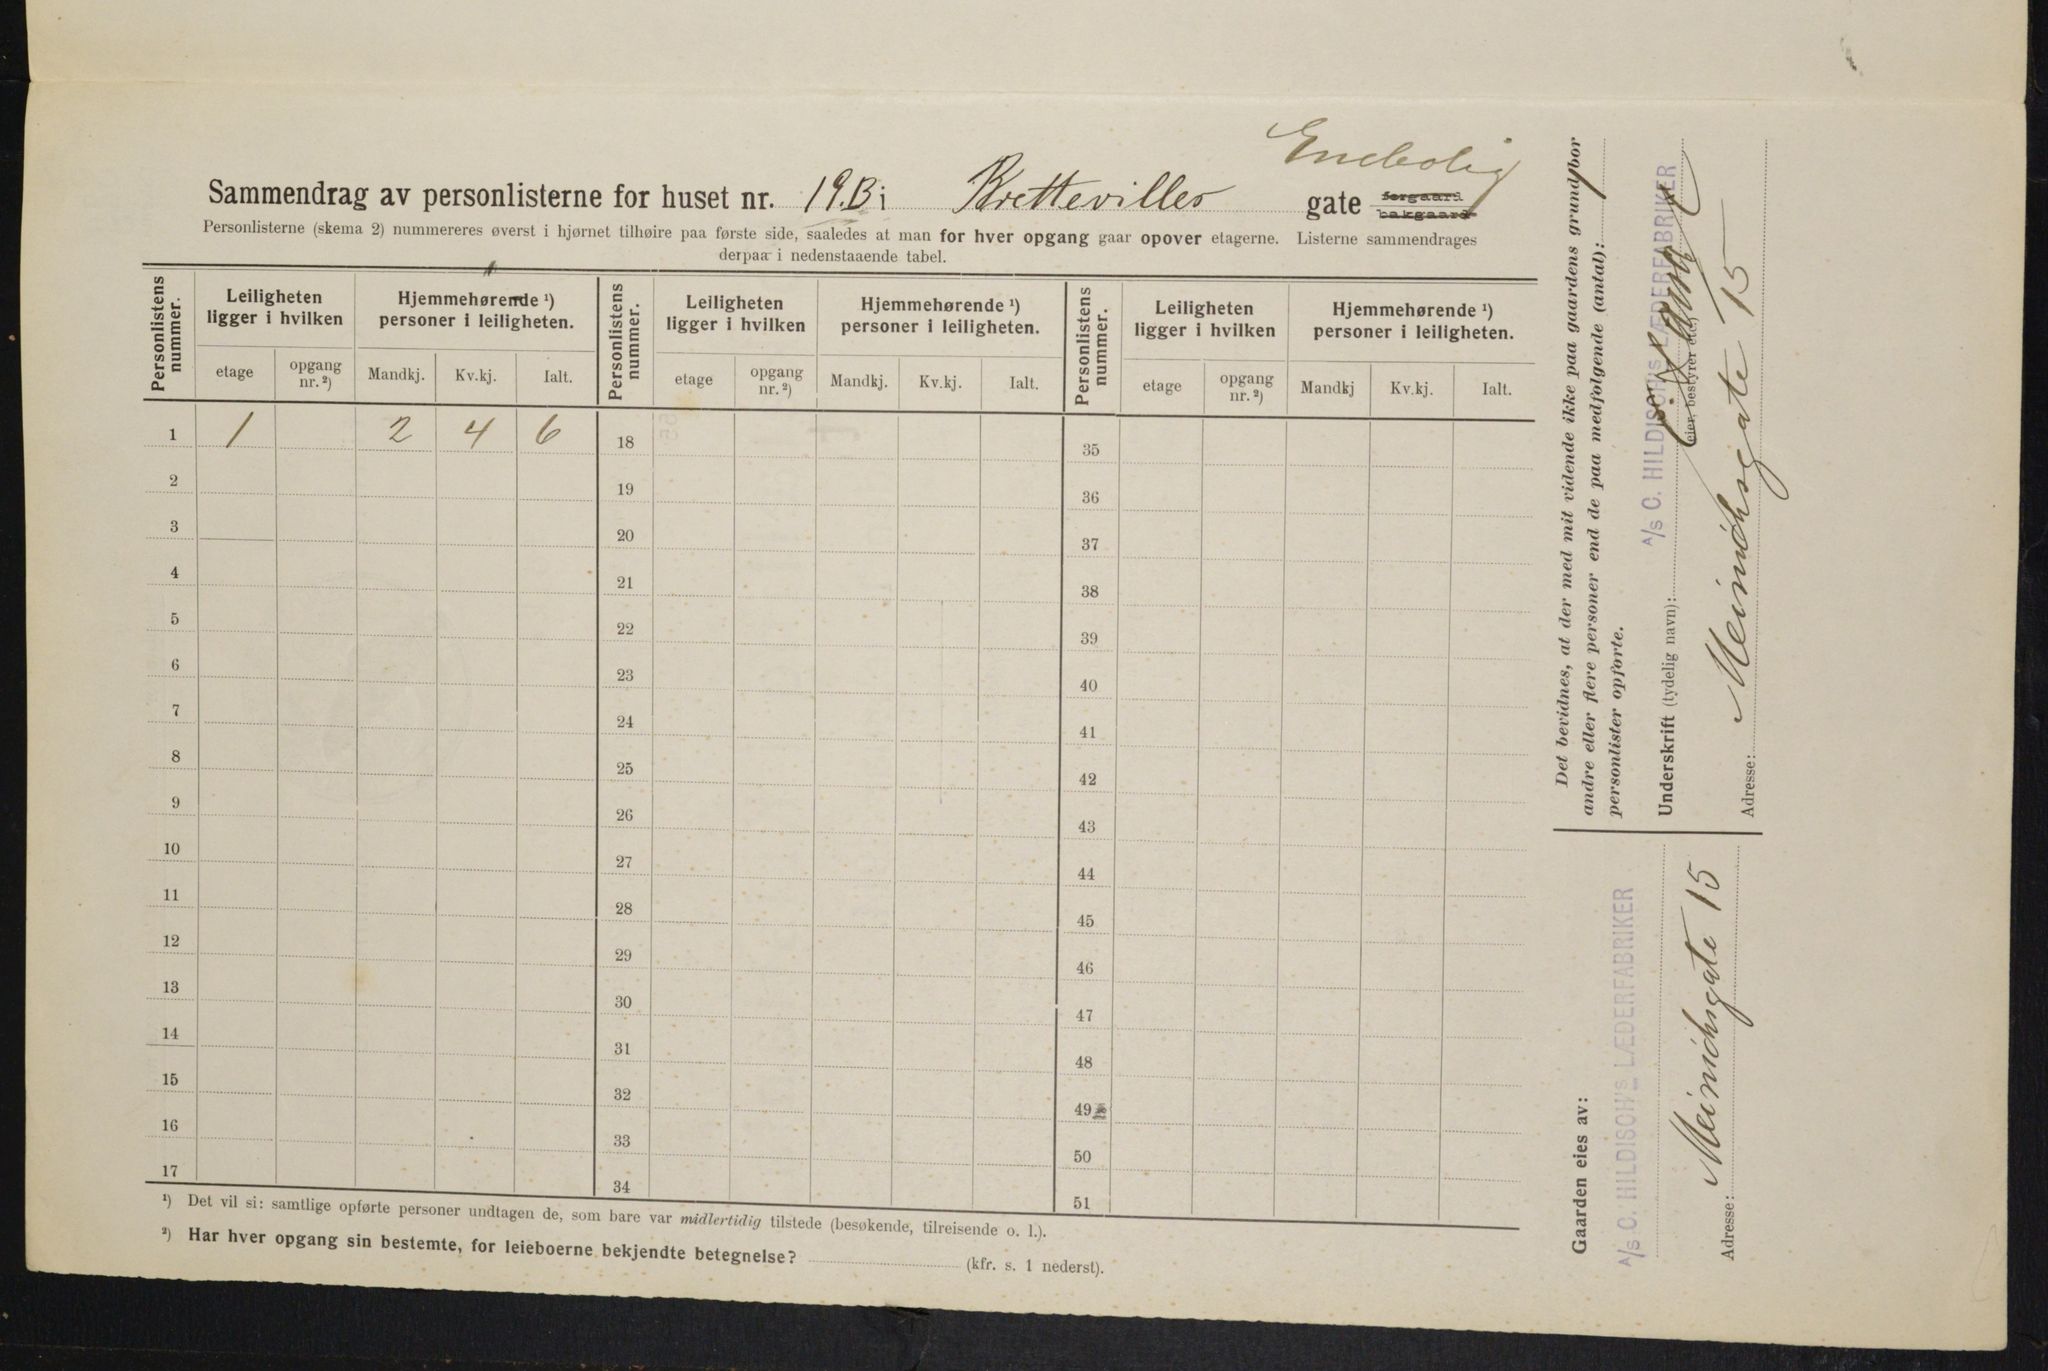 Enebolig
Sammendrag av personlisterne for huset nr. 19.B i Brettevilles gate forgaard bakgaard
Personlisterne (skema 2) nummereres øverst i hjørnet tilhøire paa første side, saaledes at man for hver opgang gaar opover etagerne. Listerne sammendrages
derpaa i nedenstaaende tabel.
Personlistens nummer. Leiligheten ligger i hvilken Hjemmehørende ¹) personer i leiligheten. Personlistens nummer. Leiligheten ligger i hvilken Hjemmehørende ¹) personer i leiligheten. Personlistens nummer. Leiligheten ligger i hvilken Hjemmehørende ¹) personer i leiligheten.
etage opgang nr. ²) Mandkj. Kv.kj. Ialt. etage opgang nr. ²) Mandkj. Kv.kj. Ialt. etage opgang nr. ²) Mandkj Kv.kj. Ialt.
1 1 2 4 6 18 35
2 19 36
3 20 37
4 21 38
5 22 39
6 23 40
7 24 41
8 25 42
9 26 43
10 27 44
11 28 45
12 29 46
13 30 47
14 31 48
15 32 49
16 33 50
17 34 51
¹) Det vil si: samtlige opførte personer undtagen de, som bare var midlertidig tilstede (besøkende, tilreisende o. l.).
²) Har hver opgang sin bestemte, for leieboerne bekjendte betegnelse? (kfr. s. 1 nederst).
Det bevidnes, at der med mit vidende ikke paa gaardens grund bor
andre eller flere personer end de paa medfølgende (antal): 1
personlister opførte.
A/S C. HILDISCH's LÆDERFABRIKER
Underskrift (tydelig navn):
(eier, bestyrer etc.)
Adresse: Meinichsgate 15
Gaarden eies av:
A/S C. HILDISCH's LÆDERFABRIKER
Adresse: Meinichsgate 15